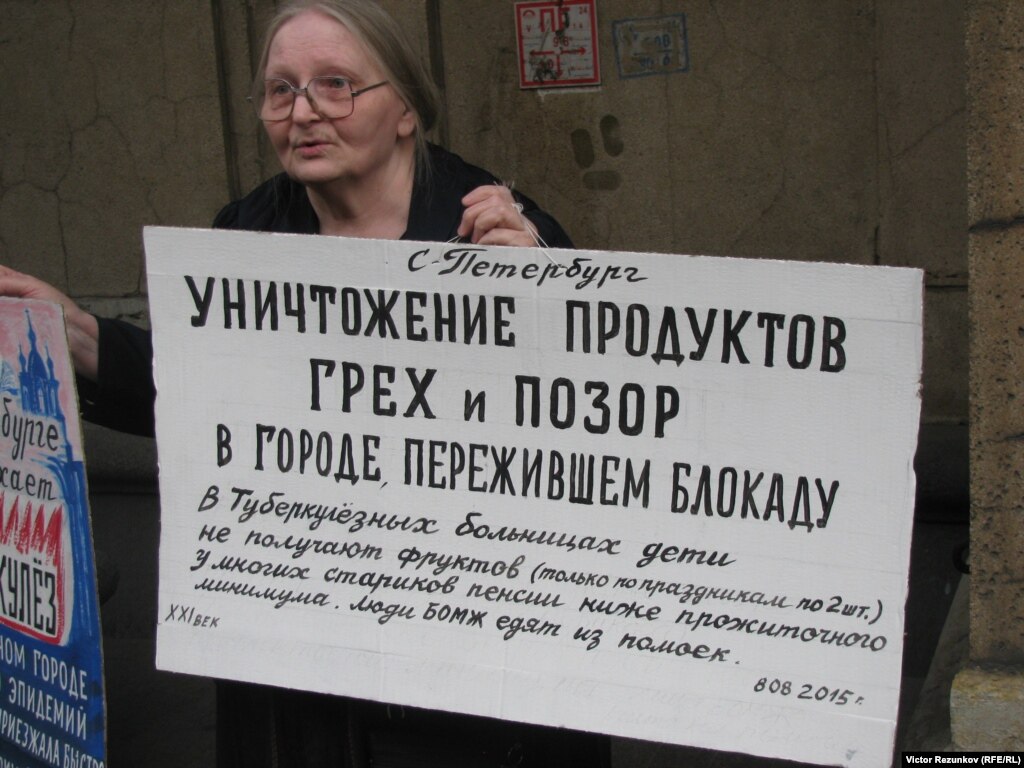 ПГ
С-Петербург
УНИЧТОЖЕНИЕ ПРОДУКТОВ
ГРЕХ и ПОЗОР
В ГОРОДЕ, ПЕРЕЖИВШЕМ БЛОКАДУ
В Туберкулёзных больницах дети
не получают фруктов (только по праздникам по 2шт.)
У многих стариков пенсии ниже прожиточного
минимума. люди БОМЖ едят из помоек.
XXI век
8 08 2015 г.
бурге
хает
КУЛЁЗ
НОМ ГОРОДЕ
ЭПИДЕМИЙ
ПРИЕЗЖАЛА БЫСТРО
Victor Rezunkov (RFE/RL)